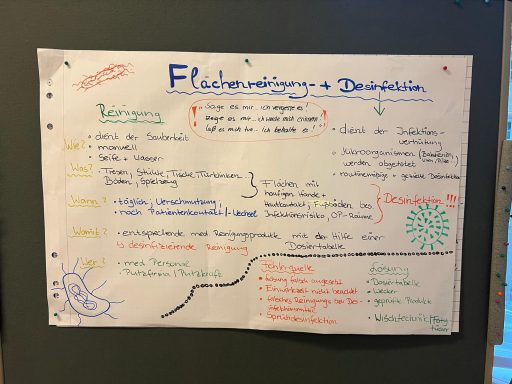 Flächenreinigung- + Desinfektion
Reinigung
"Sage es mir... ich vergesse es!
Zeige es mir... ich werde mich erinnern
Laß es mich tun - Ich behalte es!"
Wie?
• dient der Sauberkeit
• manuell
• Seife + Wasser
• dient der Infektions-
verhütung
• Mikroorganismen (Bakterien,
werden abgetötet
• routinemäßige + gezielte Desinfektion
Was?
• Tresen, Stühle, Tische, Türklinken
Böden, Spielzeug
Flächen mit
häufigen Hände +
Hautkontakt, Fußböden bes.
Infektionsrisiko, OP-Räume
Desinfektion!!!
Wann?
• täglich, Verschmutzung,
• nach Patientenkontakt/-Wechsel
Womit?
• entsprechende med Reinigungsprodukte mit der Hilfe einer
Dosiertabelle
↳ desinfizierende Reinigung
Wer?
• med. Personal
• Putzfirma/Putzkraft
Fehlerquelle
• Lösung falsch angesetzt
• Einwirkzeit nicht beachtet
• falsches Reinigungs bzw Des-
infektionsmittel
• Sprühdesinfektion
Lösung
• Dosiertabelle
• Wecker
• geprüfte Produkte
• Wischtechnik/